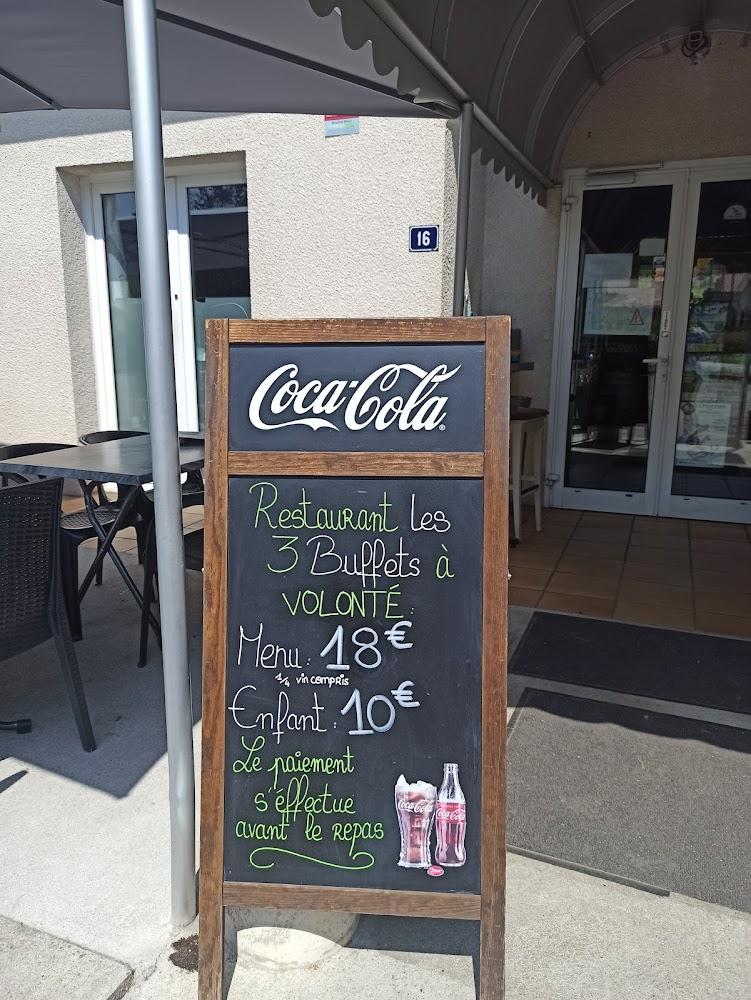 16
Coca-Cola
Restaurant les
3 Buffets à
VOLONTÉ:
Menu: 18€
1/4 vin compris
Enfant: 10€
Le paiement
s'éffectue
avant le repas
Coca-Cola
Coca-Cola